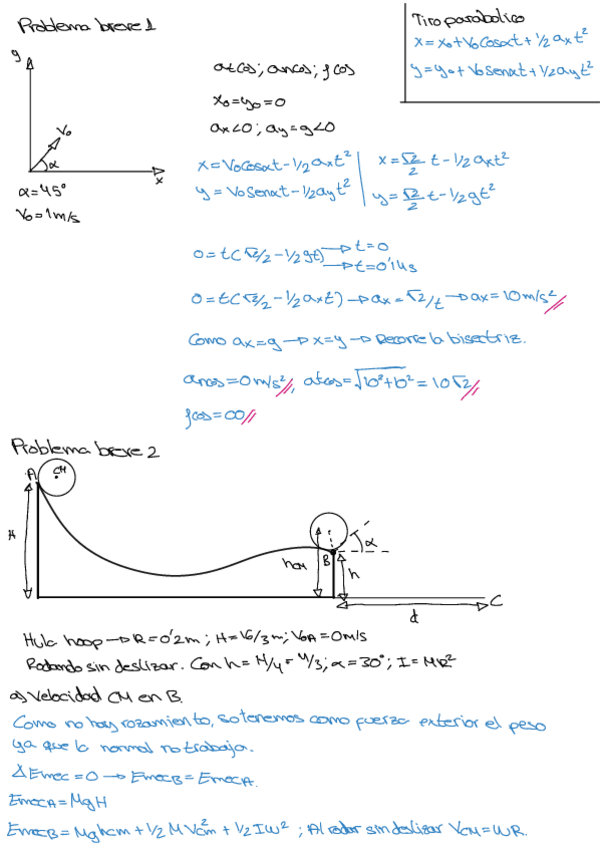 Problema breve 1
Tiro parabólico
x = x₀ + V₀cosαt + 1/2 aₓt²
y = y₀ + V₀senαt + 1/2 ayt²
y
V₀
α
x
α = 45°
V₀ = 1m/s
atcos; ancos; ρcos
x₀ = y₀ = 0
ax<0; ay = g<0
x = V₀cosαt - 1/2 axt² | x = √2/2 t - 1/2 axt²
y = V₀senαt - 1/2 ayt² | y = √2/2 t - 1/2 gt²
0 = t(√2/2 - 1/2 gt) → t = 0
→ t = 0'14s
0 = t(√2/2 - 1/2 axt) → ax = √2/t → ax = 10m/s²
Como ax = g → x = y → Recorre la bisectriz.
ancos = 0m/s², atcos = √10² + 10² = 10√2
ρcos = ∞
Problema breve 2
A
CM
H
hCM
r
B
α
h
d
C
Hula hoop → R = 0'2m; H = 16/3m; V₀A = 0m/s
Rodando sin deslizar. Con h = H/4 = 4/3; α = 30°; I = MR²
a) Velocidad CM en B.
Como no hay rozamiento, so tenemos como fuerza exterior el peso
ya que la normal no trabaja.
ΔEmec = 0 → EmecB = EmecA.
EmecA = MgH
EmecB = Mghcm + 1/2 MVcm² + 1/2 Iω²; Al rodar sin deslizar VCM = ωR.